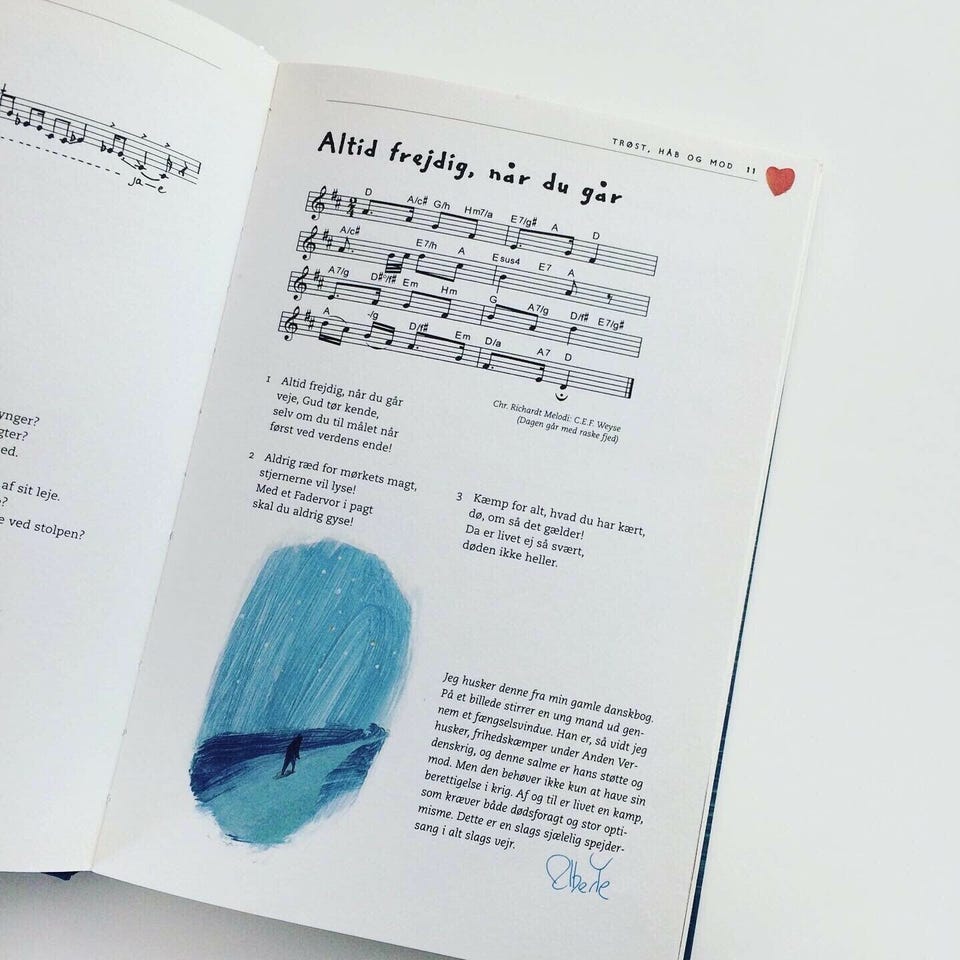 ja-e
ynger?
gter?
ed.
af sit leje.
e?
e ved stolpen?
TRØST, HÅB OG MOD 11
Altid frejdig, når du går
D A/c# G/h Hm7/a E7/g# A D
A/c# E7/h A Esus4 E7 A
A7/g D#°/f# Em Hm G A7/g D/f# E7/g#
A -/g D/f# Em D/a A7 D
Chr. Richardt Melodi: C.E.F. Weyse
(Dagen går med raske fjed)
1 Altid frejdig, når du går
veje, Gud tør kende,
selv om du til målet når
først ved verdens ende!
2 Aldrig ræd for mørkets magt,
stjernerne vil lyse!
Med et Fadervor i pagt
skal du aldrig gyse!
3 Kæmp for alt, hvad du har kært,
dø, om så det gælder!
Da er livet ej så svært,
døden ikke heller.
Jeg husker denne fra min gamle danskbog.
På et billede stirrer en ung mand ud gen-
nem et fængselsvindue. Han er, så vidt jeg
husker, frihedskæmper under Anden Ver-
denskrig, og denne salme er hans støtte og
mod. Men den behøver ikke kun at have sin
berettigelse i krig. Af og til er livet en kamp,
som kræver både dødsforagt og stor opti-
misme. Dette er en slags sjælelig spejder-
sang i alt slags vejr.